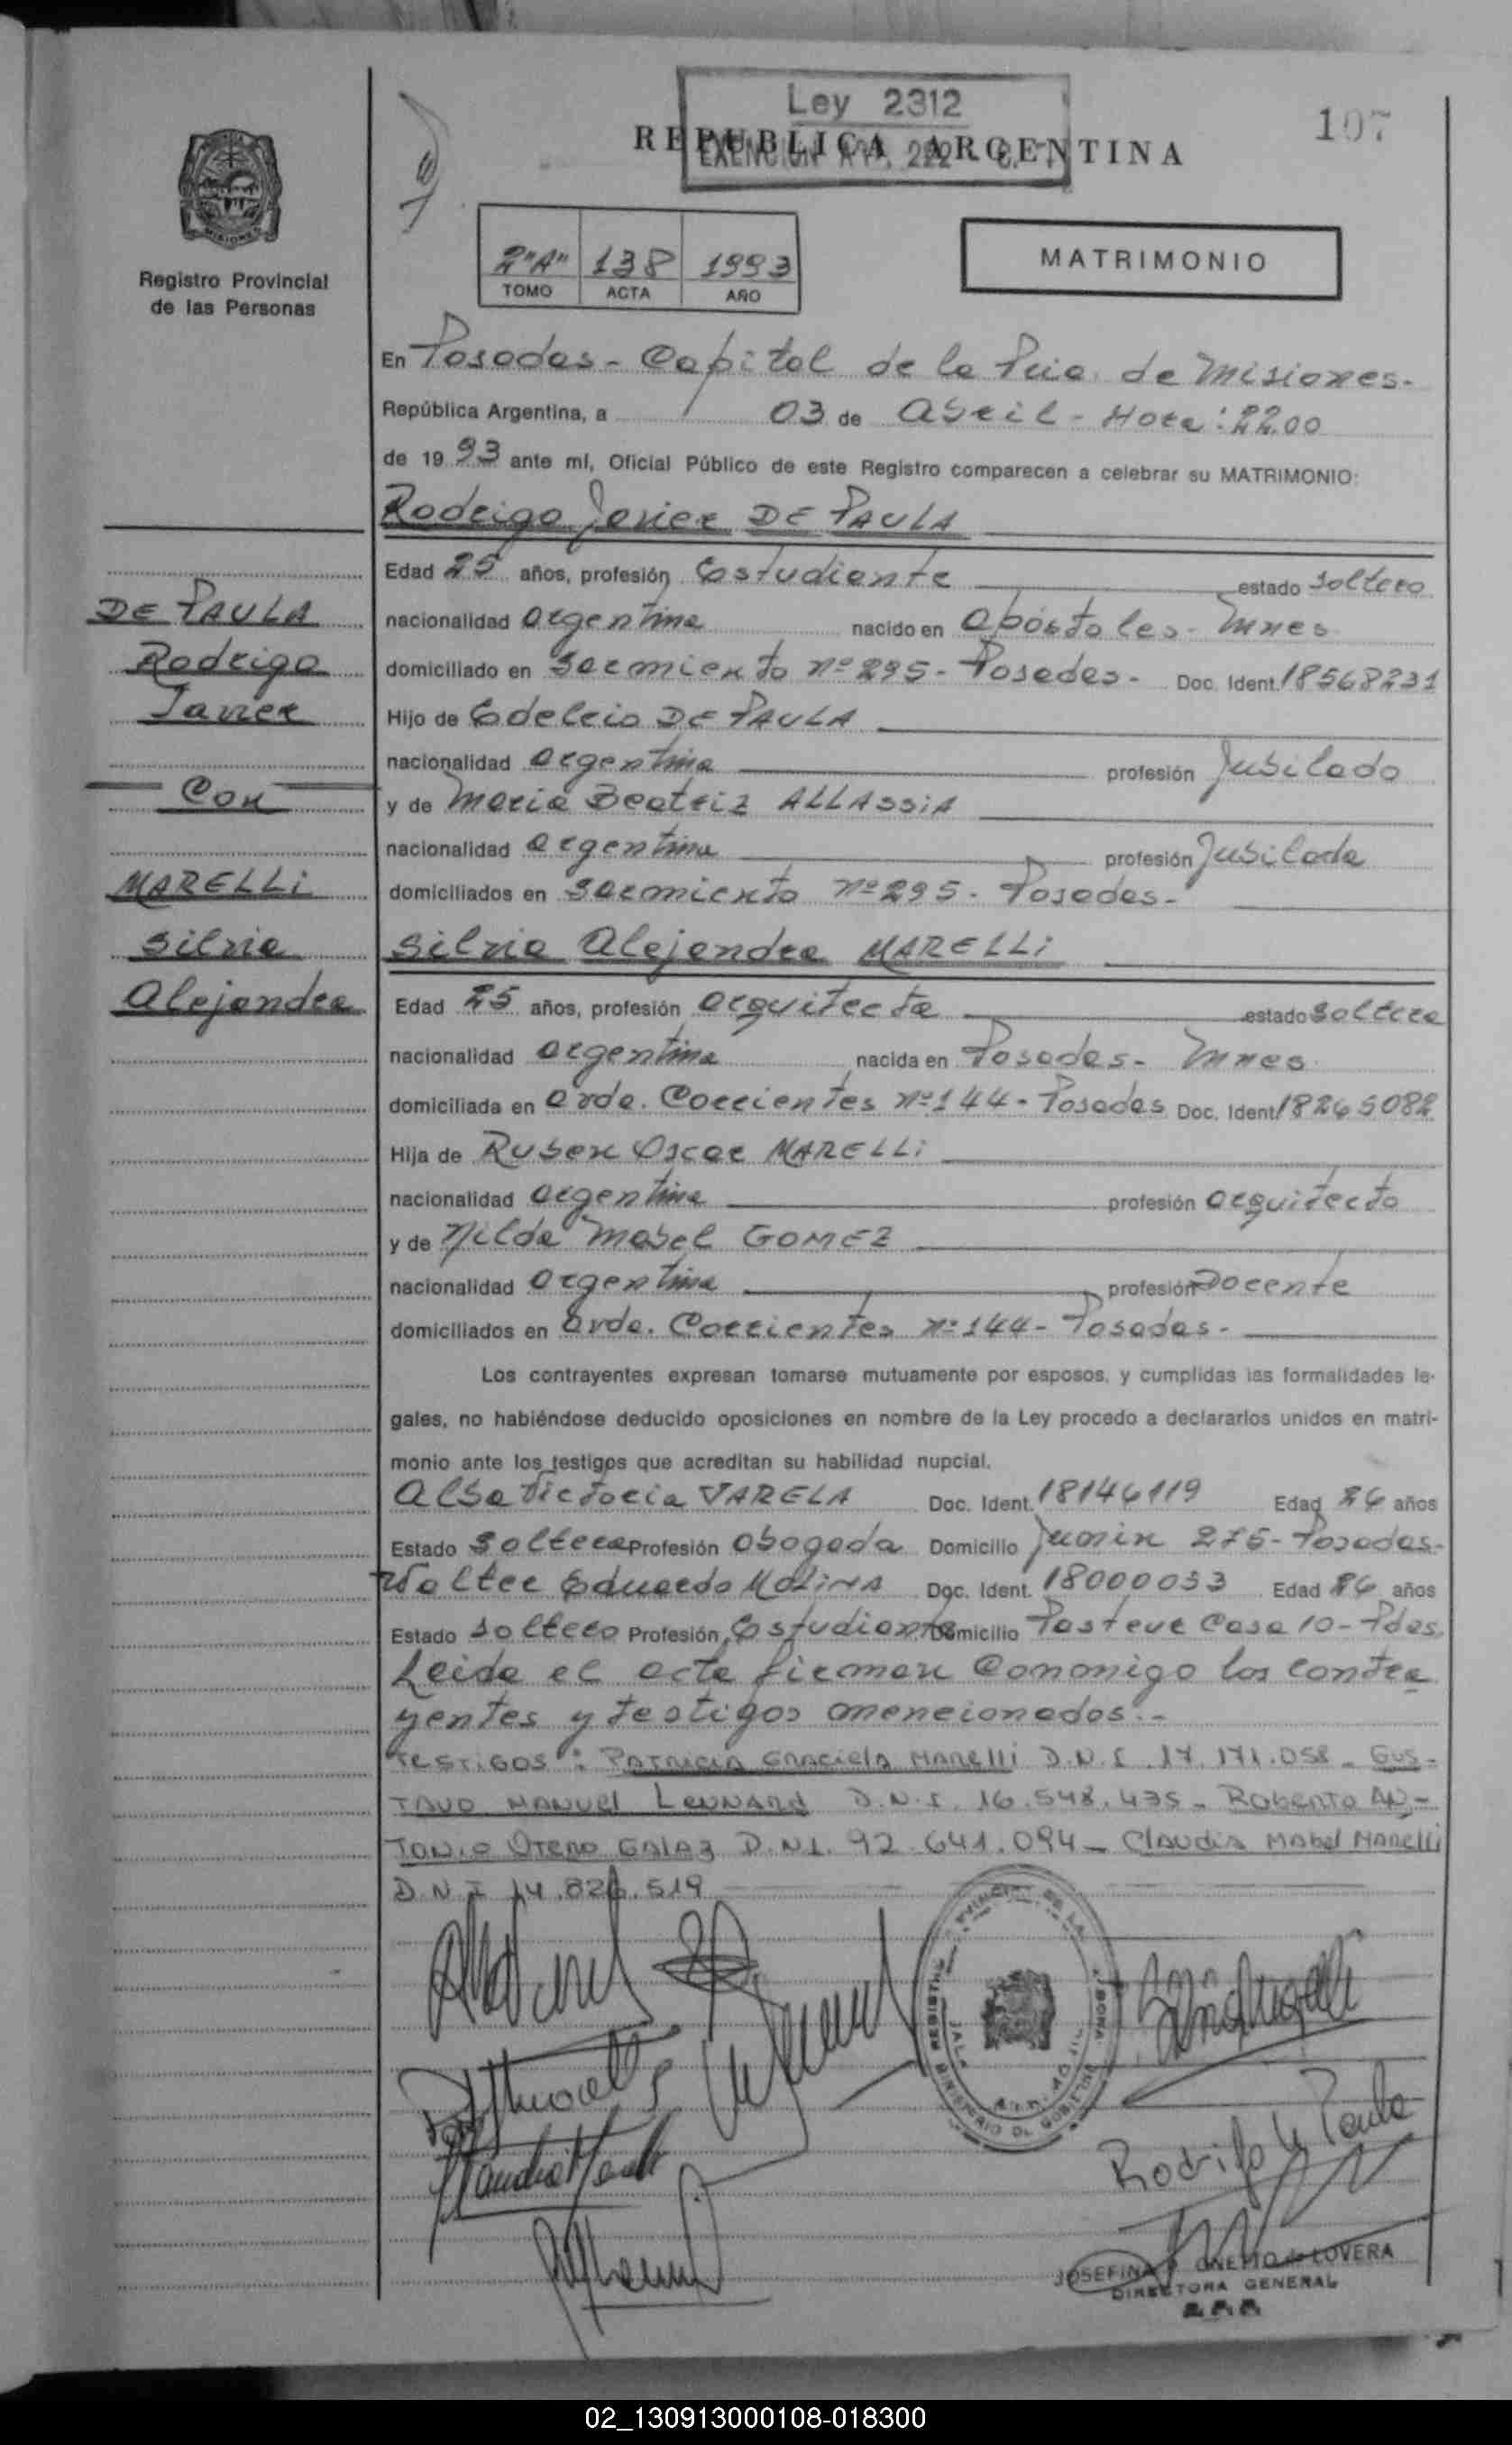 Ley 2312
REPUBLICA ARGENTINA
107
MISIONES
Registro Provincial
de las Personas
2"A" 138 1993
TOMO ACTA AÑO
MATRIMONIO
En Posadas - Capital de la Pcia. de Misiones.-
República Argentina, a 03 de Abril - Hora: 22.00
de 1993 ante mí, Oficial Público de este Registro comparecen a celebrar su MATRIMONIO:
Rodrigo Javier DE PAULA
Edad 25 años, profesión Estudiante estado soltero
DE PAULA
nacionalidad argentina nacido en Apóstoles - Mnes
Rodrigo
domiciliado en Sarmiento nº 295 - Posadas - Doc. Ident. 18568231
Javier
Hijo de Edelcio DE PAULA
nacionalidad argentina profesión Jubilado
Con
y de Maria Beatriz ALLASSIA
nacionalidad argentina profesión Jubilada
MARELLI
domiciliados en Sarmiento nº 295 - Posadas -
Silvia
Silvia Alejandra MARELLI
Alejandra
Edad 25 años, profesión arquitecta estado soltera
nacionalidad argentina nacida en Posadas - Mnes
domiciliada en avda. Corrientes nº 144 - Posadas Doc. Ident. 18265082
Hija de Ruben Oscar MARELLI
nacionalidad argentina profesión arquitecto
y de Nilda Mabel GOMEZ
nacionalidad argentina profesión Docente
domiciliados en avda. Corrientes nº 144 - Posadas -
Los contrayentes expresan tomarse mutuamente por esposos, y cumplidas las formalidades le-
gales, no habiéndose deducido oposiciones en nombre de la Ley procedo a declararlos unidos en matri-
monio ante los testigos que acreditan su habilidad nupcial.
Alba Victoria VARELA Doc. Ident. 18146119 Edad 26 años
Estado Soltera Profesión abogada Domicilio Junin 275 - Posadas -
Walter Eduardo MOLINA Doc. Ident. 18000033 Edad 26 años
Estado soltero Profesión Estudiante Domicilio Pasteur Casa 10 - Pdas.
Leida el acta firman Conomigo los contra
yentes y testigos mencionados.-
TESTIGOS: PATRICIA GRACIELA MARELLI D.N.I. 17.171.058 - GUS-
TAVO MANUEL LENNARD D.N.I. 16.548.435 - ROBERTO AN-
TONIO OTERO GALAZ D.N.I. 92.641.094 - CLAUDIA MABEL MARELLI
D.N.I 14.826.519
Rodrigo de Paula
DIRECTORA GENERAL
02_130913000108-018300